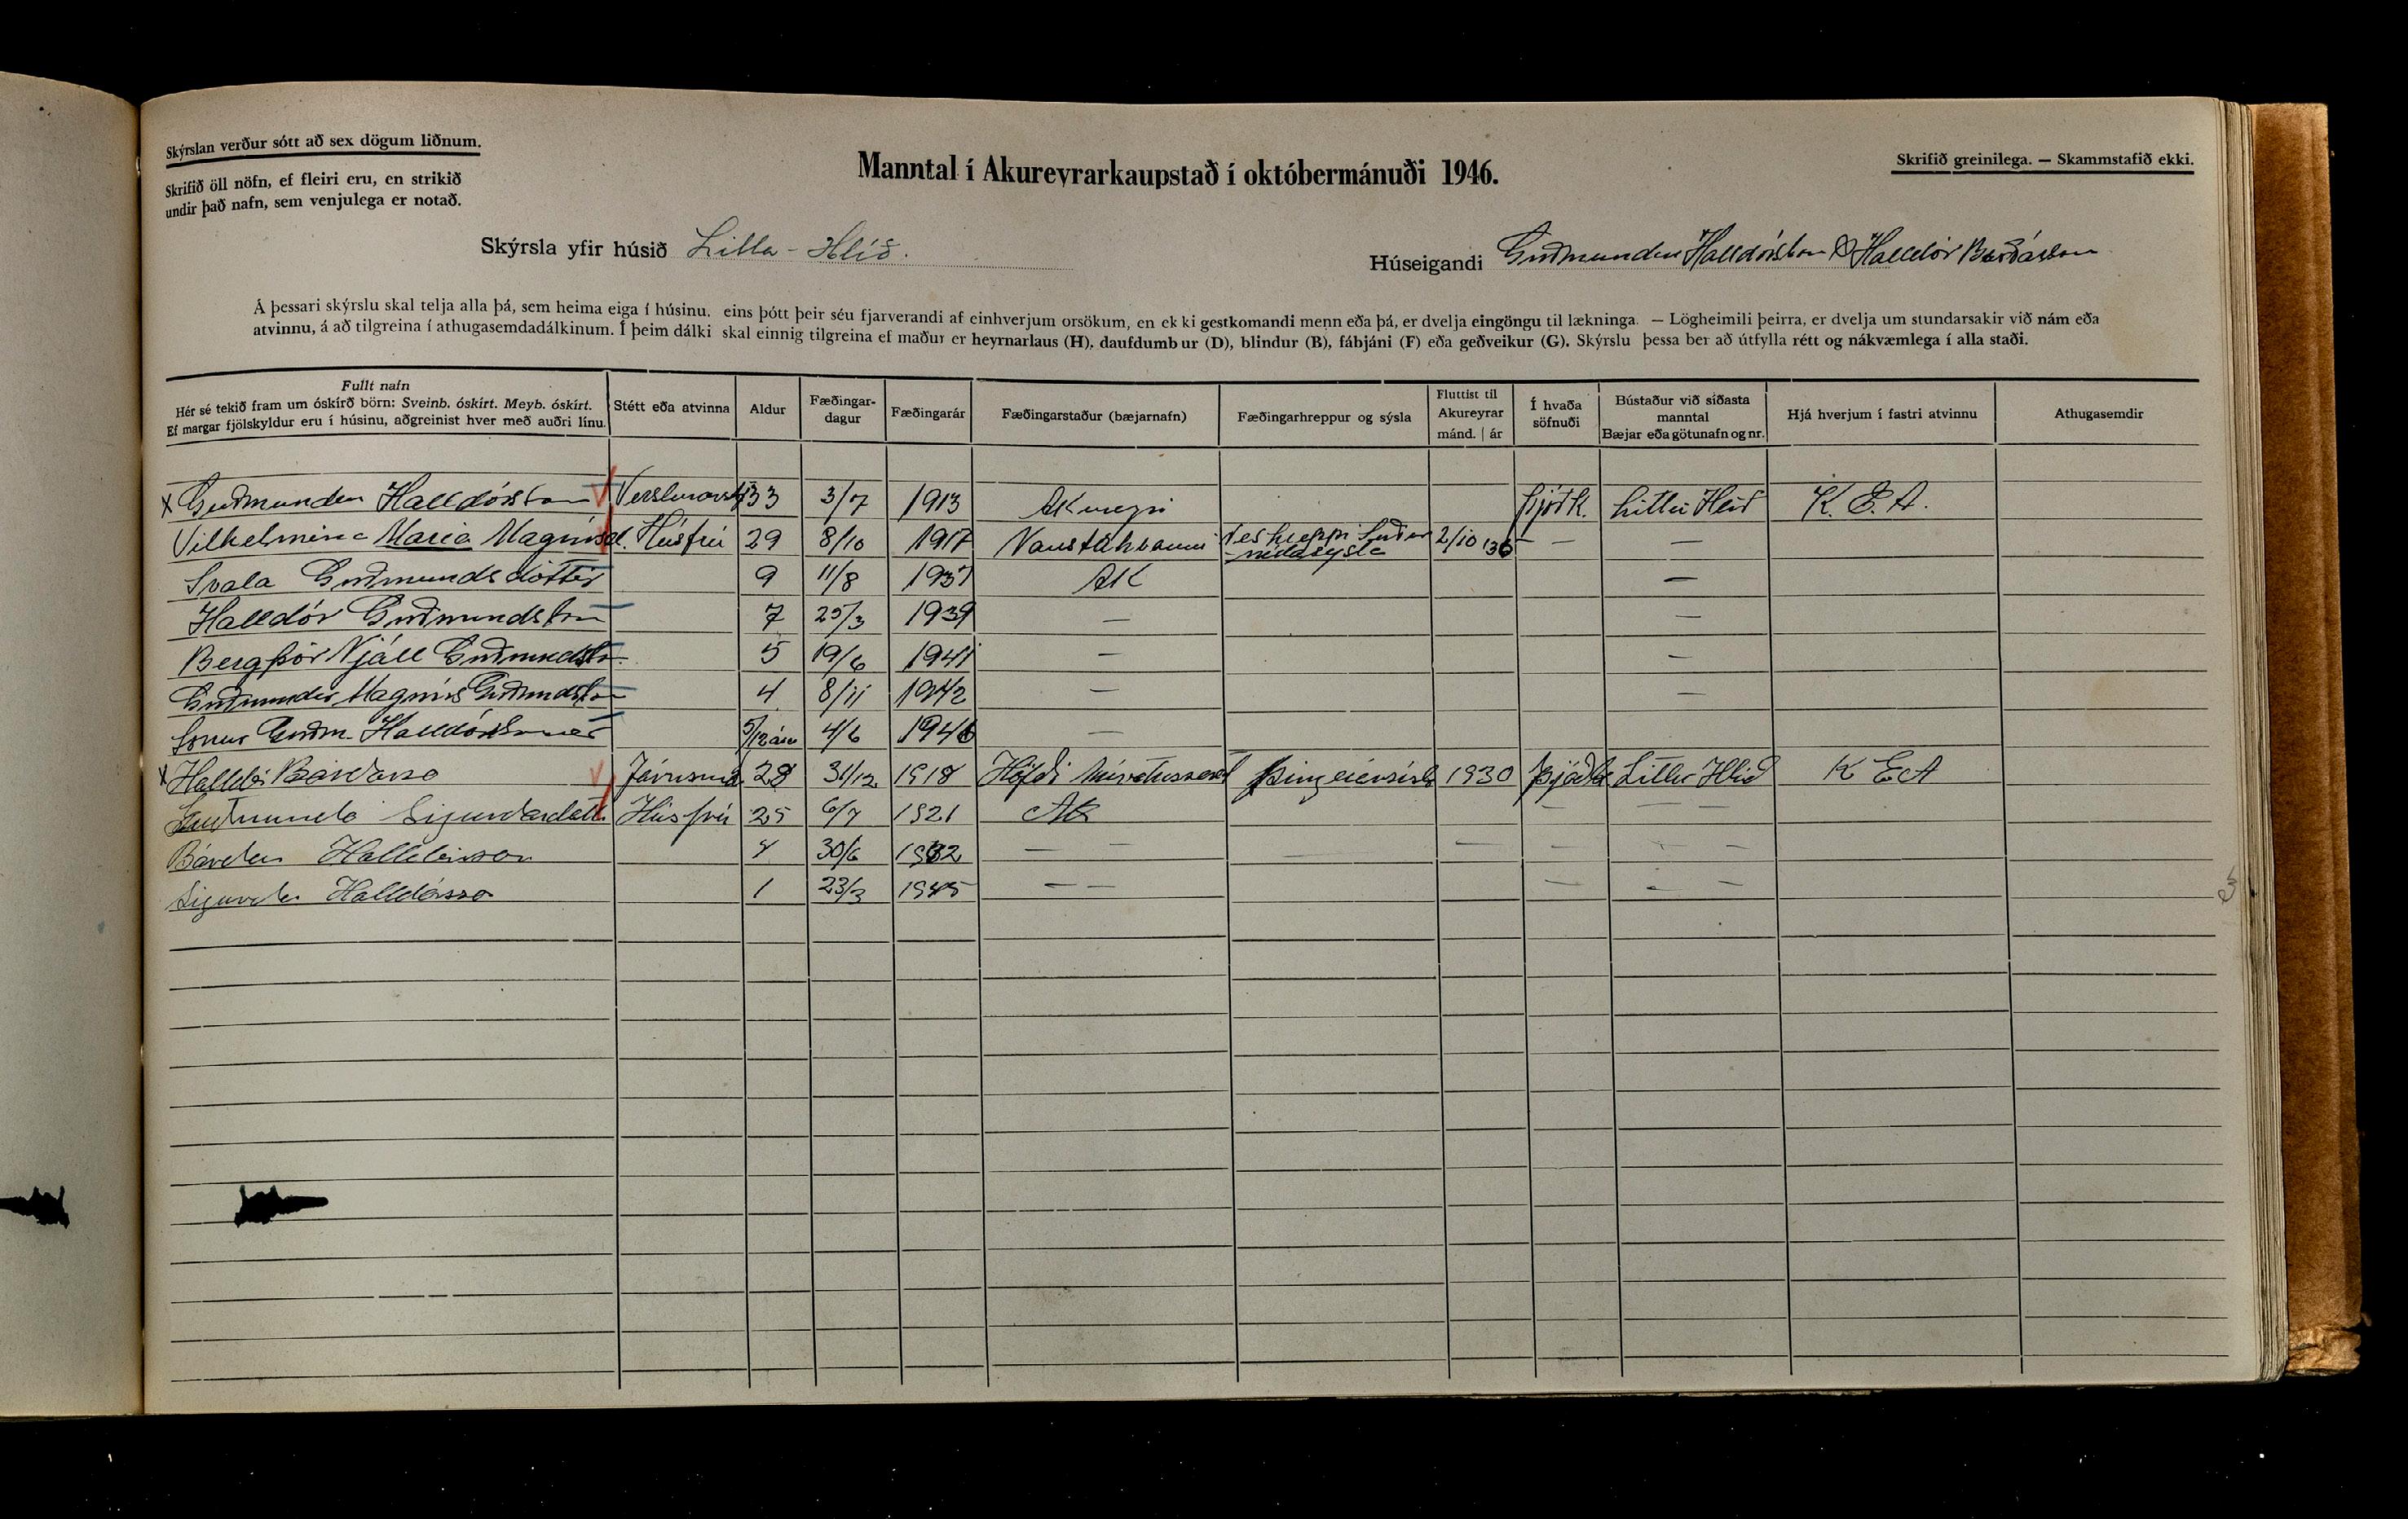 Skýrslan verður sótt að sex dögum liðnum.
Skrifið öll nöfn, ef fleiri eru, en strikið
undir það nafn, sem venjulega er notað.
Manntal í Akureyrarkaupstað í októbermánuði 1946.
Skrifið greinilega. — Skammstafið ekki.
Skýrsla yfir húsið Litla-Hlíð.
Húseigandi Guðmundur Halldórsson & Halldór Bárðarson
Á þessari skýrslu skal telja alla þá, sem heima eiga í húsinu, eins þótt þeir séu fjarverandi af einhverjum orsökum, en ekki gestkomandi menn eða þá, er dvelja eingöngu til lækninga. — Lögheimili þeirra, er dvelja um stundarsakir við nám eða
atvinnu, á að tilgreina í athugasemdadálkinum. Í þeim dálki skal einnig tilgreina ef maður er heyrnarlaus (H), daufdumbur (D), blindur (B), fábjáni (F) eða geðveikur (G). Skýrslu þessa ber að útfylla rétt og nákvæmlega í alla staði.
Fullt nafn
Hér sé tekið fram um óskírð börn: Sveinb. óskírt. Meyb. óskírt.
Ef margar fjölskyldur eru í húsinu, aðgreinist hver með auðri línu.
Stétt eða atvinna
Aldur
Fæðingar-
dagur
Fæðingarár
Fæðingarstaður (bæjarnafn)
Fæðingarhreppur og sýsla
Fluttist til
Akureyrar
mánd. | ár
Í hvaða
söfnuði
Bústaður við síðasta
manntal
Bæjar eða götunafn og nr.
Hjá hverjum í fastri atvinnu
Athugasemdir
x Guðmundur Halldórsson 33 3/7 1913 Akureyri Þjóðk. Litlu Hlíð K. E. A.
Vilhelmína María Magnúsd. Húsfrú 29 8/10 1917 Neshreppi Suður 2/10 '36 — —
-múlasýsla
Svala Guðmundsdóttir 9 11/8 1937 AK —
Halldór Guðmundsson 7 25/3 1939 — —
Bergþór Njáll Guðmundsson 5 19/6 1941 — —
Guðmundur Magnús Guðmundsson 4 8/11 1942 — —
Sonur Guðm. Halldórssonar 5/12 árs 4/6 1946 —
x Halldór Bárðarso Járnsmið 28 31/12 1918 Höfði Mývatnssveit Þingeiarsísla 1930 Þjóðk Litlu Hlíð K E A
Guðmunda Sigurðardótti Húsfrú 25 6/7 1921 AK — — —
Bárður Halldórsson 30/6 — — — — — — — —
Sigurður Halldórsso 1 23/3 1945 — — — — —